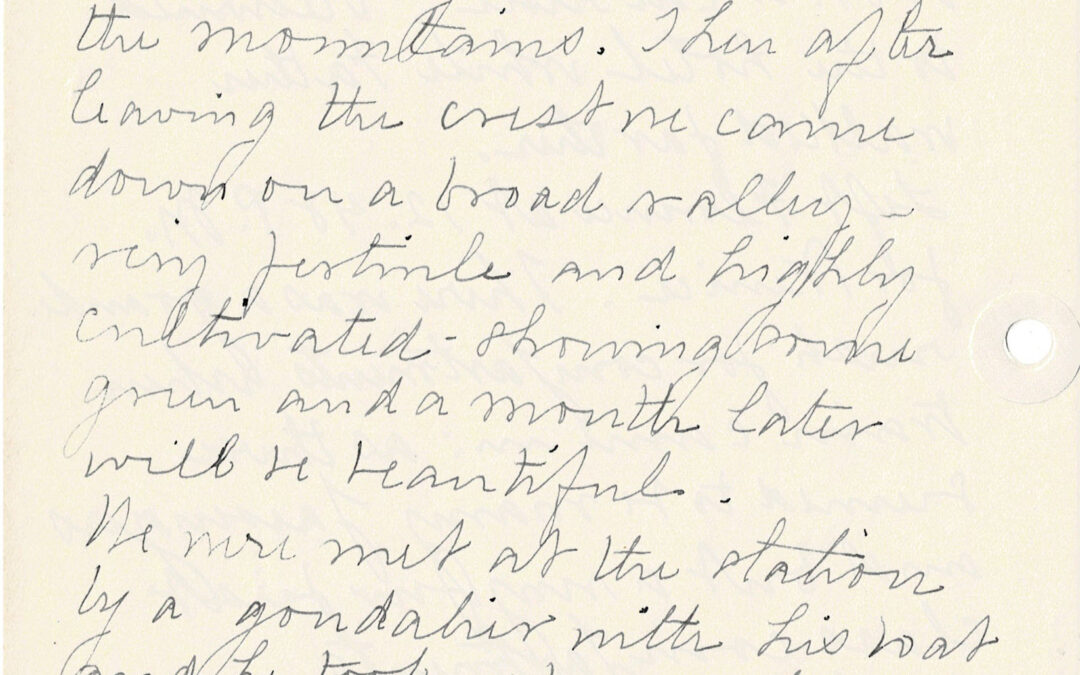 the mountains. Then after
leaving the crest we came
down on a broad valley -
very fertile and highly
cultivated - showing some
green and a month later
will be beautiful.
We were met at the station
by a gondalier with his boat
and he took